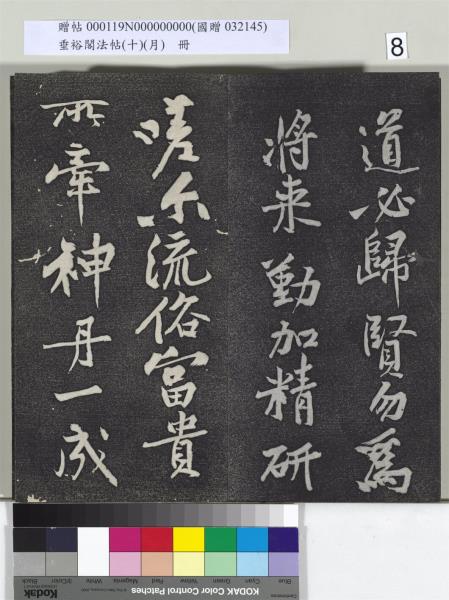 贈帖 000119N000000000(國贈 032145)
垂裕閣法帖(十)(月) 冊
8
道必歸賢勿爲
將来勤加精研
嗟尓流俗富貴
所牽神丹一成
Blue Cyan Green Yellow Red Magenta White 3/Color Black
KODAK Color Control Patches
Kodak